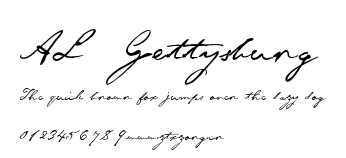 AL Gettysburg
The quick brown fox jumps over the lazy dog
0123456789 www.ztxzongxn